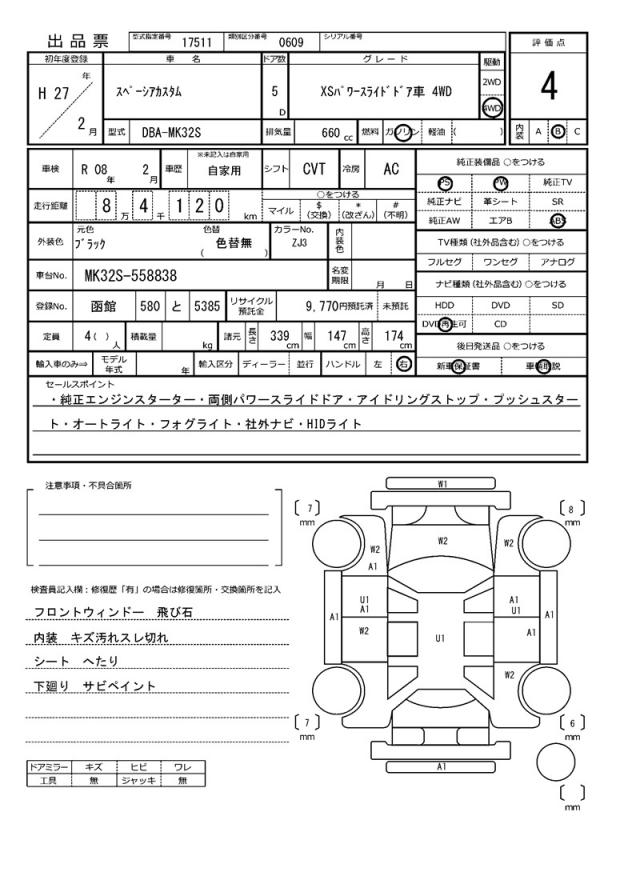 出品票 型式指定番号 17511 類別区分番号 0609 シリアル番号
評価点
4
初年度登録 車名 ドア数 グレード 駆動
H 27 年 2 月 スペーシアカスタム 5 D XSパワースライドドア車 4WD 2WD 4WD
型式 DBA-MK32S 排気量 660 cc 燃料 ガソリン 軽油 ( )
内装 A B C
車検 R 08 年 2 月 車歴 ※未記入は自家用 自家用 シフト CVT 冷房 AC
走行距離 8 万 4 千 1 2 0 km
○をつける
マイル $ (交換) * (改ざん) # (不明)
外装色 元色 ブラック 色替 ( 色替無 ) カラーNo. ZJ3 内装色
車台No. MK32S-558838 名変期限 月 日
登録No. 函館 580 と 5385 リサイクル預託金 9,770円預託済 未預託
定員 4( ) 人 積載量 kg 諸元 長さ 339 cm 幅 147 cm 高さ 174 cm
輸入車のみ⇒ モデル年式 年 輸入区分 ディーラー 並行 ハンドル 左 右
純正装備品 ○をつける
PS PW 純正TV
純正ナビ 革シート SR
純正AW エアB ABS
TV種類 (社外品含む) ○をつける
フルセグ ワンセグ アナログ
ナビ種類 (社外品含む) ○をつける
HDD DVD SD
DVD再生可 CD
後日発送品 ○をつける
新車保証書 車輌取説
セールスポイント
・純正エンジンスターター・両側パワースライドドア・アイドリングストップ・プッシュスター
ト・オートライト・フォグライト・社外ナビ・HIDライト
注意事項・不具合箇所
検査員記入欄：修復歴「有」の場合は修復箇所・交換箇所を記入
フロントウィンドー 飛び石
内装 キズ汚れスレ切れ
シート へたり
下廻り サビペイント
ドアミラー キズ ヒビ ワレ
工具 無 ジャッキ 無
W1
〔 7 〕 mm
〔 8 〕 mm
W2 W2 W2
A1
U1 A1
A1 U1
A1 A1
W2 U1
W2
〔 7 〕 mm
〔 6 〕 mm
A1
〔 〕 mm